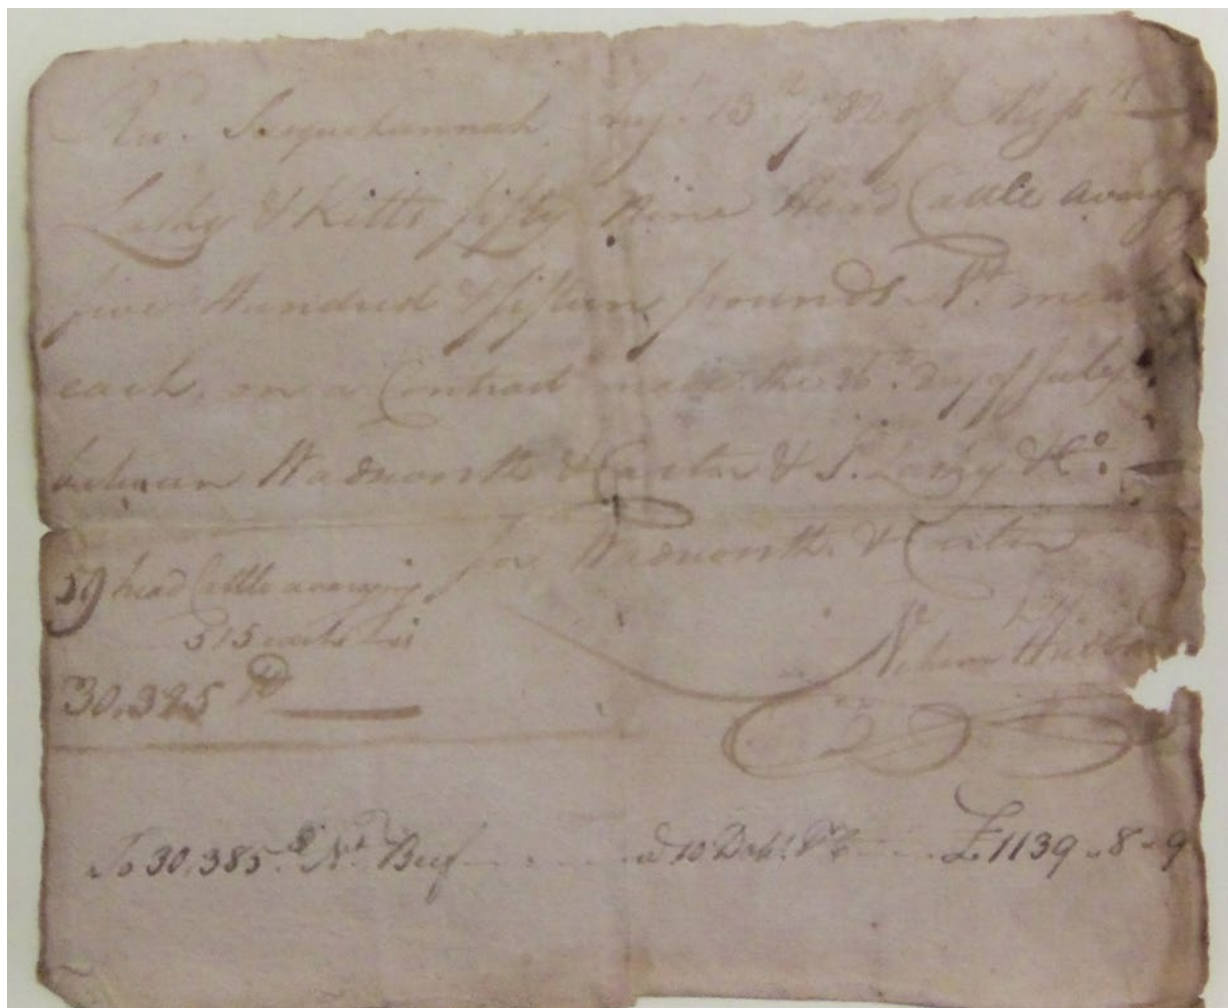 Susquehannah Augt. 13th 1782 of Messrs
Lasky & Kitts fifty Nine Head Cattle averag
five Hundred & fifteen pounds Nt. meat
each, on a Contract made the 26th. day of July
between Wadsworth & Carter & S. Lasky & Co.
for Wadsworth & Carter
59 head Cattle averaging
515 each is
30,385 lb
Nehem Hubbard
To 30,385 lb Nt. Beef a 10 £1139 " 8 " 9